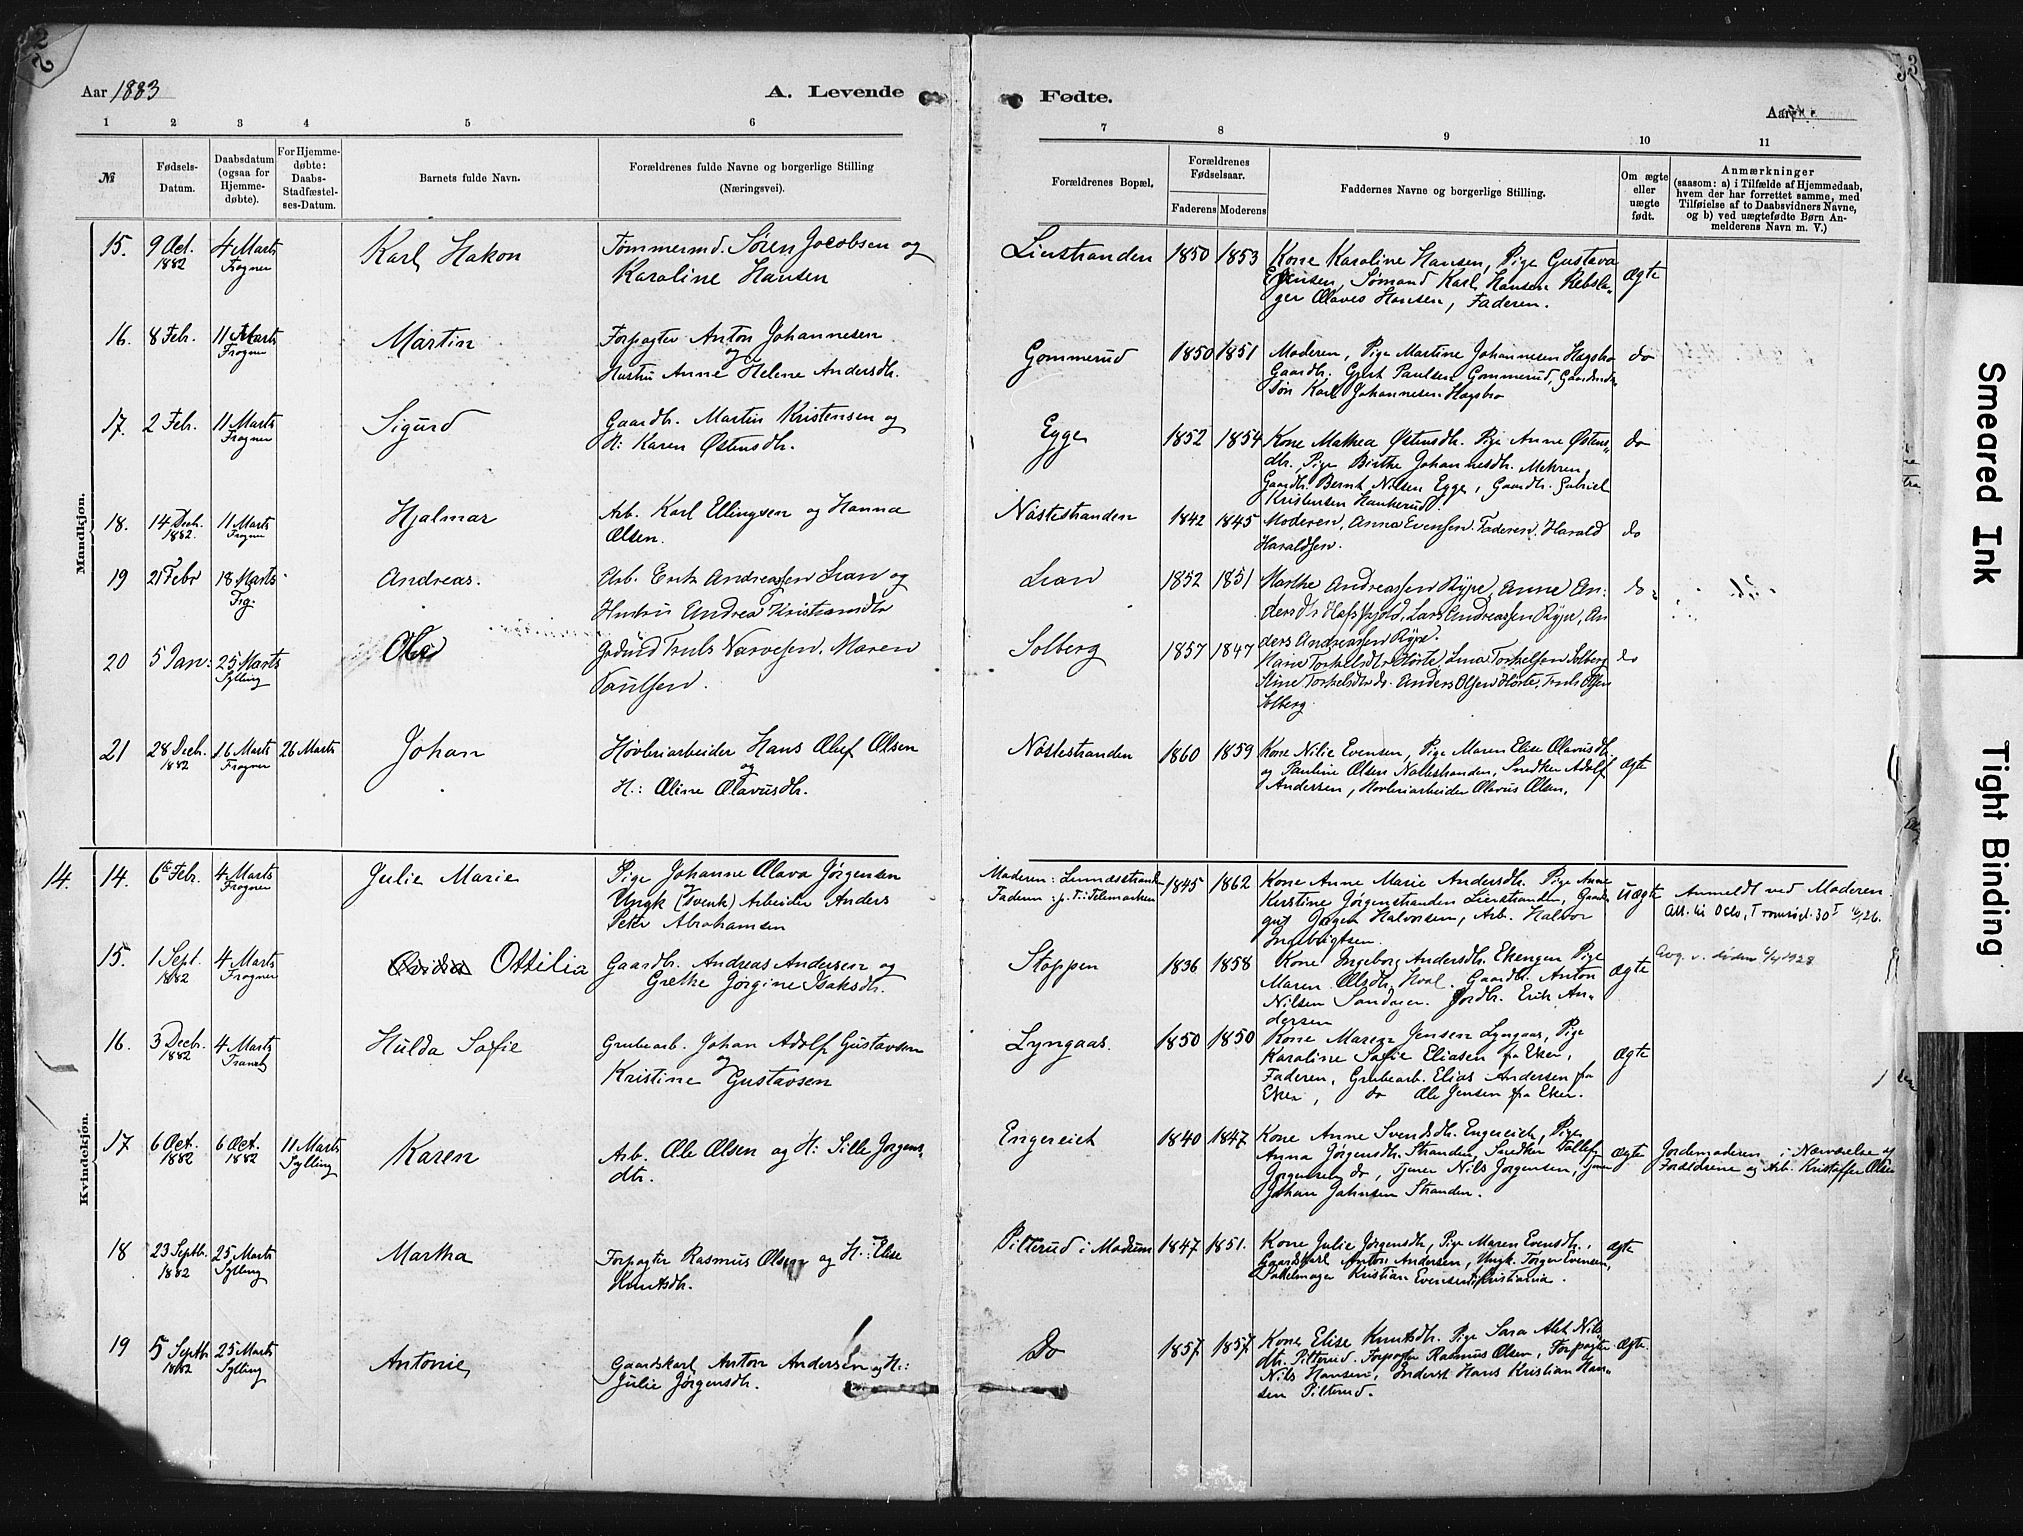 Aar 1883
A. Levende
Fødte.
Aar
1 2 3 4 5 6 7 8 9 10 11
№
Fødsels-Datum.
Daabsdatum (ogsaa for Hjemme-døbte).
For Hjemme-døbte: Daabs-Stadfæstel-ses-Datum.
Barnets fulde Navn.
Forældrenes fulde Navne og borgerlige Stilling (Næringsvei).
Forældrenes Bopæl.
Forældrenes Fødselsaar.
Faderens Moderens
Faddernes Navne og borgerlige Stilling.
Om ægte eller uægte født.
Anmærkninger
(saasom: a) i Tilfælde af Hjemmedaab, hvem der har forrettet samme, med Tilføielse af to Daabsvidners Navne, og b) ved uægtefødte Børn An-melderens Navn m. V.)
Mandkjøn.
15. 9 Oct. 1882 4 Marts Frogner Karl Hakon Tømmermd. Søren Jacobsen og Karoline Hansen Lierstranden 1850 1853 Kone Karoline Hansen, Pige Gustava
Sømand Karl Hansen Rebsla-
ger Olaves Hansen, Faderen. ægte
16. 8 Febr. 11 Marts Frogner Martin Forpagter Anton Johannesen og Hustru Anne Helene Andersdtr. Gommerud 1850 1851 Moderen, Pige Martine Johannesen Hegsbro
Gaardbr. Gert Paulsen Gommerud, Gaardmds
søn Karl Johannesen Hegsbro do
17. 2 Febr. 11 Marts Frogner Sigurd Gaardbr. Martin Kristensen og H: Karen Østensdtr. Egge 1852 1854 Kone Mathea Østensdtr. Pige Anne Østens-
dtr., Pige Birthe Johannesdtr. Mehren,
Gaardbr. Bernt Nilsen Egge, Gaardbr. Gabriel
Kristensen do
18. 14 Decb. 1882. 11 Marts Frogner Hjalmar Arb. Karl Ellingsen og Hanna Olsen. Nøstestranden 1842 1845 Moderen, Anna Evensen. Faderen, Harald
Haraldsen. do
19 21 Febr 18 Marts Frg. Andreas. Arb. Erik Andreassen Lian og Hustru Andrea Kristiansdtr Lian 1852 1851 Marthe Andreassen Rype, Anne An-
dersdtr Lars Andreassen Rype, An-
ders Andreassen Rype. do
20 5 Jan. 25 Marts Sylling Ole Grdmd Truls Narvesen. Maren Paulsen. Solberg 1857 1847 Marie Torkelsdtr Hørte, Lina Torkelsen Solberg
Stine Torkelsdtr do. Anders Olsen Hørte, Truls Olsen
Solberg. do
21 28 Decb. 1882 16 Marts Frogner 26 Marts Johan Høvleriarbeider Hans Olef Olsen og H.: Oline Olavusdtr. Nøstestranden 1860 1859 Kone Nilie Evensen, Pige Maren Elise Olavusdtr.
og Pauline Olsen Nøstestranden, Snedker Adolf
Andersen, Høvleriarbeider Olavus Olsen. ægte
Kvindekjøn.
14. 14. 6te Febr. 4 Marts Frogner Julie Marie Pige Johanne Olava Jørgensen
Ungk (Svensk) Arbeider Anders
Peter Abrahamsen Moderen: Lierstranden
Faderen: p. T. i Telemarken 1845 1862 Kone Anne Marie Andersdtr. Pige Anne
Kirstine Jørgenstranden Lierstranden,
Jørgen Halvorsen, Arb. Halvor
Ingebrigtsen. uægte Anmeldt ved Moderen.
Att. til Oslo, Tromsød. 30
15. 1 Sept. 1882 4 Marts Frogner Ovidia Ottilia Gaardbr. Andreas Andersen og Grethe Jørgine Isaksdtr. Stoppen 1836 1858 Kone Ingeborg Andersdtr. Ekengen Pige
Maren Olsdtr. Hval. Gaardbr. Anton
Nilsen Sandager. Jordbr. Erik An-
dersen ægte
16. 3 Decb. 1882 4 Marts Tranby Hulda Sofie Grubearb. Johan Adolf Gustavsen og Kristine Gustavsen Lyngaas. 1850 1850 Kone Maren Jensen Lyngaas, Pige
Karoline Sofie Eliasen fra Eker,
Faderen, Grubearb. Elias Andersen fra
Eker, do Ole Jensen fra Eker. ægte
17 6 Oct. 1882 6 Oct. 1882 11 Marts Sylling Karen Arb. Ole Olsen og H: Sille Jørgens-
dtr. Engereiet 1840 1847 Kone Anne Svendsdtr. Engereiet, Pige
Anna Jørgensdtr. Stranden, Snedker Tollef
Jørgensen do, Tjener Nils Jørgensen, Tjener
Johan Johnsen Stranden. ægte Jordemoderen i Nærværelse af
Forældrene og Arb. Kristoffer Olsen
18 23 Septb. 1882 25 Marts Sylling Martha Forpagter Rasmus Olsen og H.: Else
Knutsdtr. Pitterud i Modum 1847 1851. Kone Julie Jørgensdtr, Pige Maren Evensdtr.,
Gaardskarl Anton Andersen, Ungk. Torger Evensen,
Kristian Evensen, Kristiania. ægte
19 5 Septb 1882 25 Marts Sylling Antonie Gaardskarl Anton Andersen og H.:
Julie Jørgensdtr. Do 1857 1857 Kone Elise Knutsdtr. Pige Sara Alet Nils-
dtr. Pitterud. Forpagter Rasmus Olsen, Forpagter
Nils Hansen, Inderst Hans Kristian Han-
sen Pitterud. ægte
Smeared Ink
Tight Binding